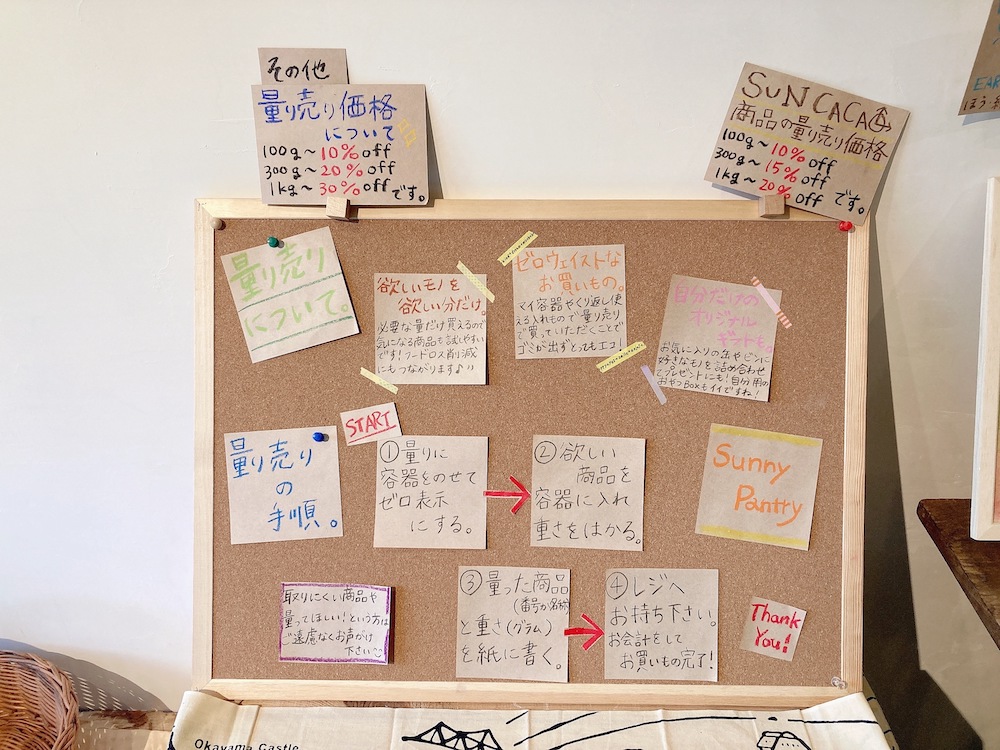 その他
量り売り価格
について
100g〜10%off
300g〜20%off
1kg〜30%offです。
SUNCACAO
商品の量り売り価格
100g〜10%off
300g〜15%off
1kg〜20%offです。
EAR
量り売り
について。
欲しいモノを
欲しい分だけ。
必要な量だけ買えるので
気になる商品も試しやすい
です!フードロス削減
にもつながります♪
ゼロウェイストな
お買いもの。
マイ容器やくり返し使
える入れもので量り売り
で買っていただくことで
ゴミが出ずとってもエコ!
自分だけの
オリジナル
ギフトも。
お気に入りの缶やビンに
好きなモノを詰め合わせ
てプレゼントにも!自分用の
おやつBoxもイイですね!
量り売り
の
手順。
START
①量りに
容器をのせて
ゼロ表示
にする。
②欲しい
商品を
容器に入れ
重さをはかる。
Sunny
Pantry
取りにくい商品や
量ってほしい!という方は
ご遠慮なくお声がけ
下さい
③量った商品
(番号か名称)
と重さ(グラム)
を紙に書く。
④レジへ
お持ち下さい。
お会計をして
お買いもの完了!
Thank
You!
Okayama Castle